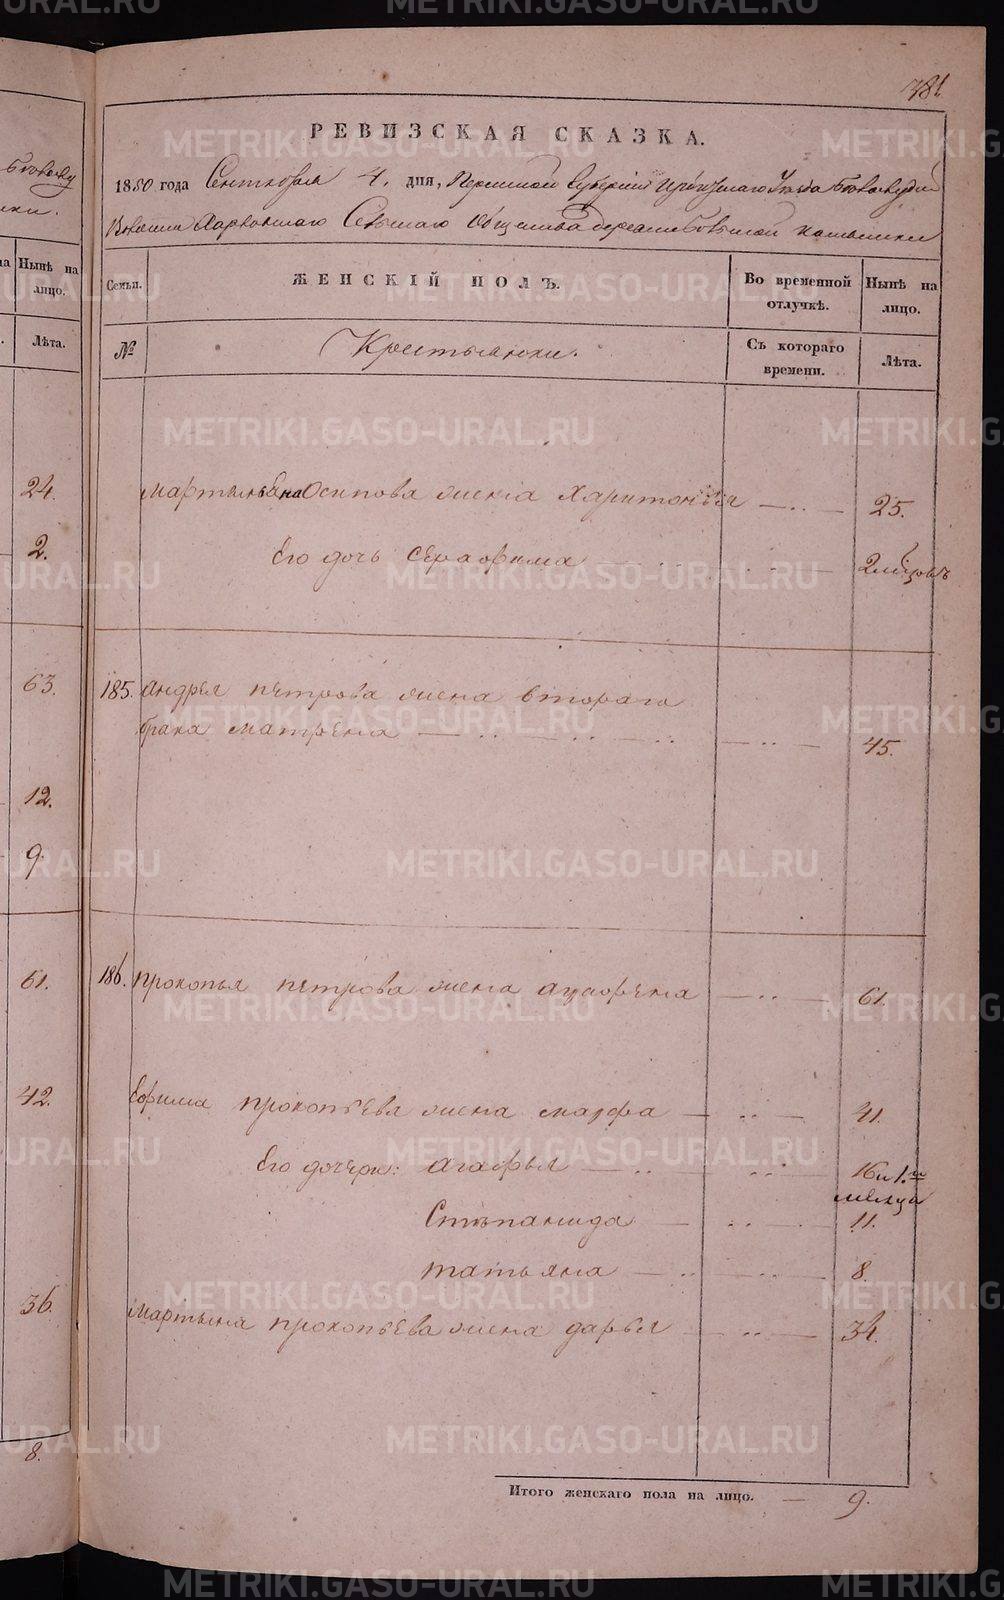 381
РЕВИЗСКАЯ СКАЗКА.
1850 года Сентября 4. дня, Пермской Губернии Ирбитскаго Уезда
Волости Харловскаго Сельскаго Общества деревни
ЖЕНСКІЙ ПОЛЪ.
Семьи.
Во временной отлучкѣ.
Нынѣ на лицо.
№
Крестьянки.
Съ котораго времени.
Лѣта.
Нынѣ на лицо.
Лѣта.
24.
2.
63.
12.
9.
61.
42.
36.
8.
Осипова жена 25.
Его дочь Серафима 2 месяцовъ
185. Андрея Петрова жена втораго
брака Матрена 45.
186. Прокопья Петрова жена 61.
Ефима Прокопьева жена Марфа 41.
Его дочери: Агафья 16 и 1. месяца
Степанида 11.
Татьяна 8.
Мартына Прокопьева жена Дарья 34.
Итого женскаго пола на лицо. — 9.
METRIKI.GASO-URAL.RU